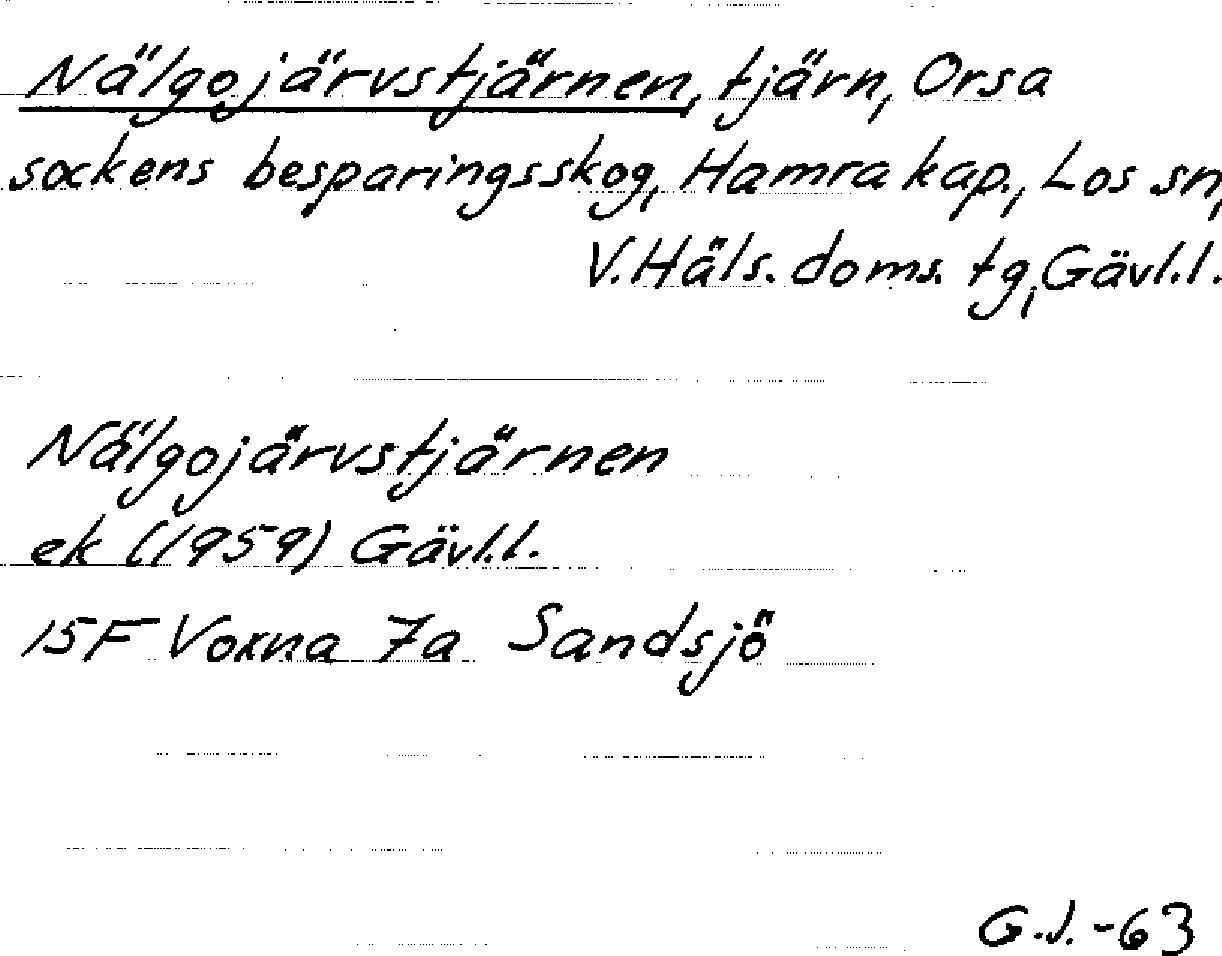 Nälgojärvstjärnen, tjärn, Orsa
sockens besparingsskog, Hamra kap., Los sn,
V. Häls. doms. tg, Gävl.l.
Nälgojärvstjärnen
ek (1959) Gävl.l.
15F Voxna 7a Sandsjö
G.J. -63